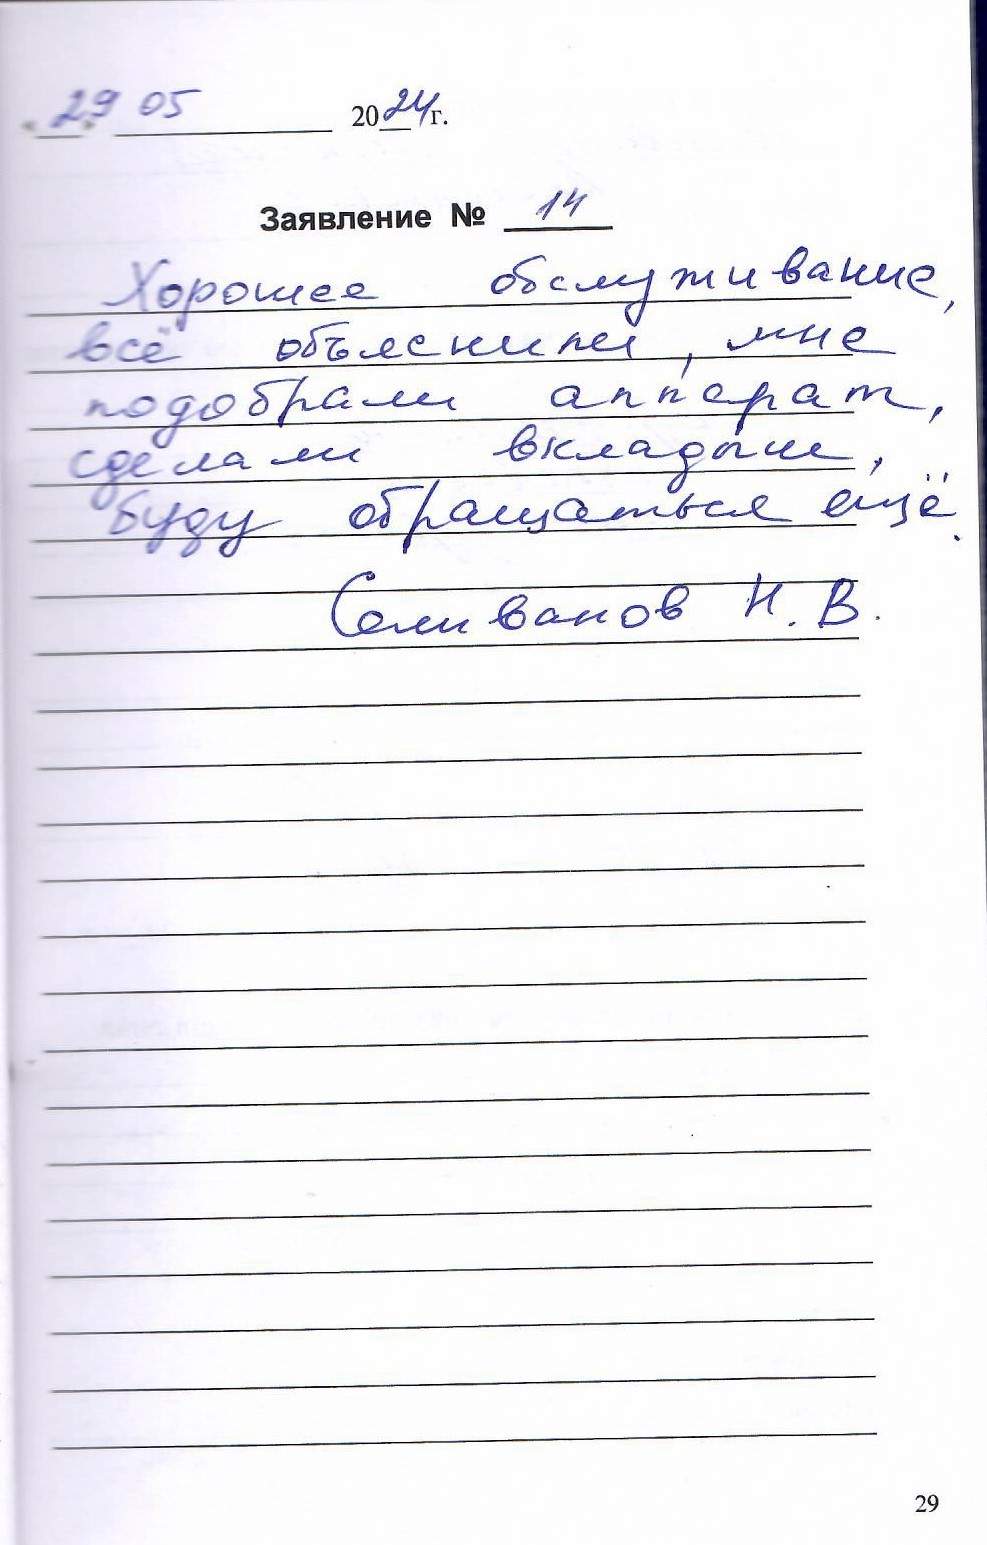 29 05 2024 г.
Заявление № 14
Хорошее обслуживание,
всё объяснили, мне
подобрали аппарат,
сделали вкладыш,
буду обращаться ещё.
Селиванов Н. В.
29